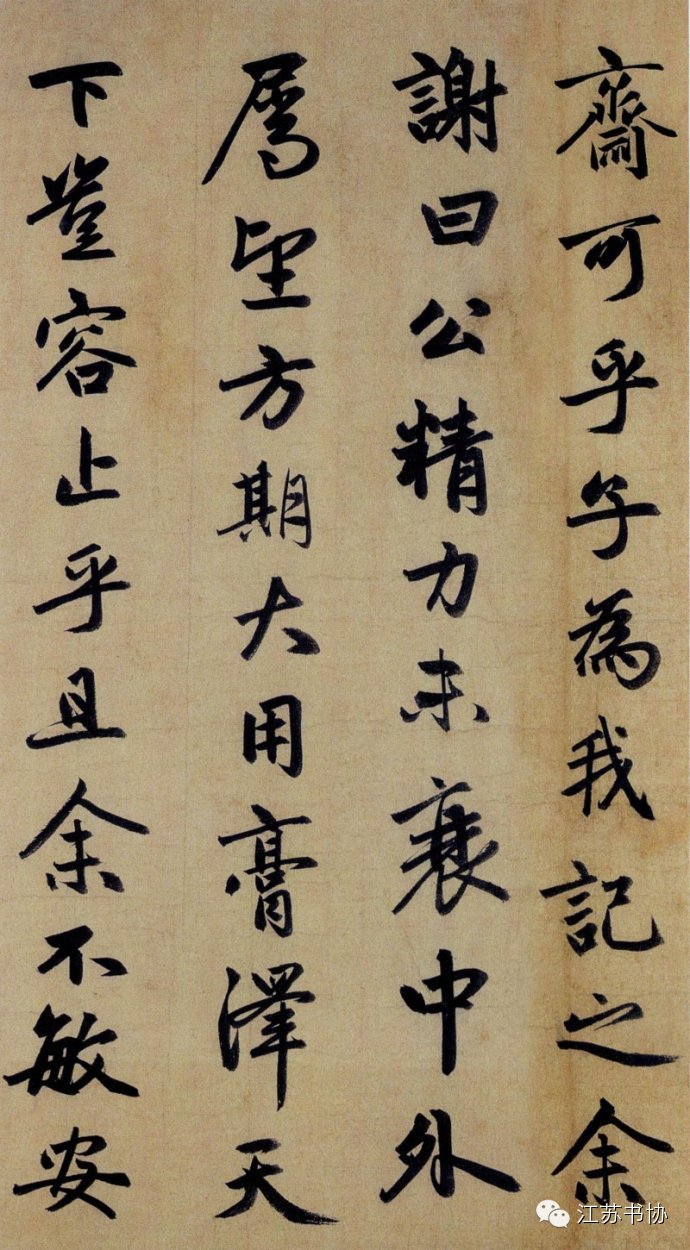 齋可乎子為我記之余
謝曰公精力未衰中外
屬望方期大用膏澤天
下豈容止乎且余不敏安
江苏书协